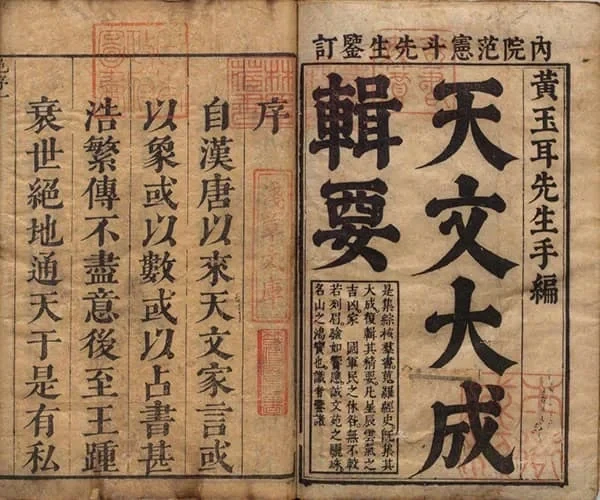 內院范憲斗先生鑒訂
黃玉耳先生手編
天文大成
輯要
是集綜核羣書蒐羅經史既集其
大成復輯其精要凡星辰雲氣之
吉凶家 國軍民之休咎無不較
若列眉驗如響應誠文苑之驪珠
名山之鴻寶也識者鑒諸
序
林氏藏書
淺草文庫
自漢唐以來天文家言或
以象或以數或以占書甚
浩繁傳不盡意後至王踵
衰世絕地通天于是有私